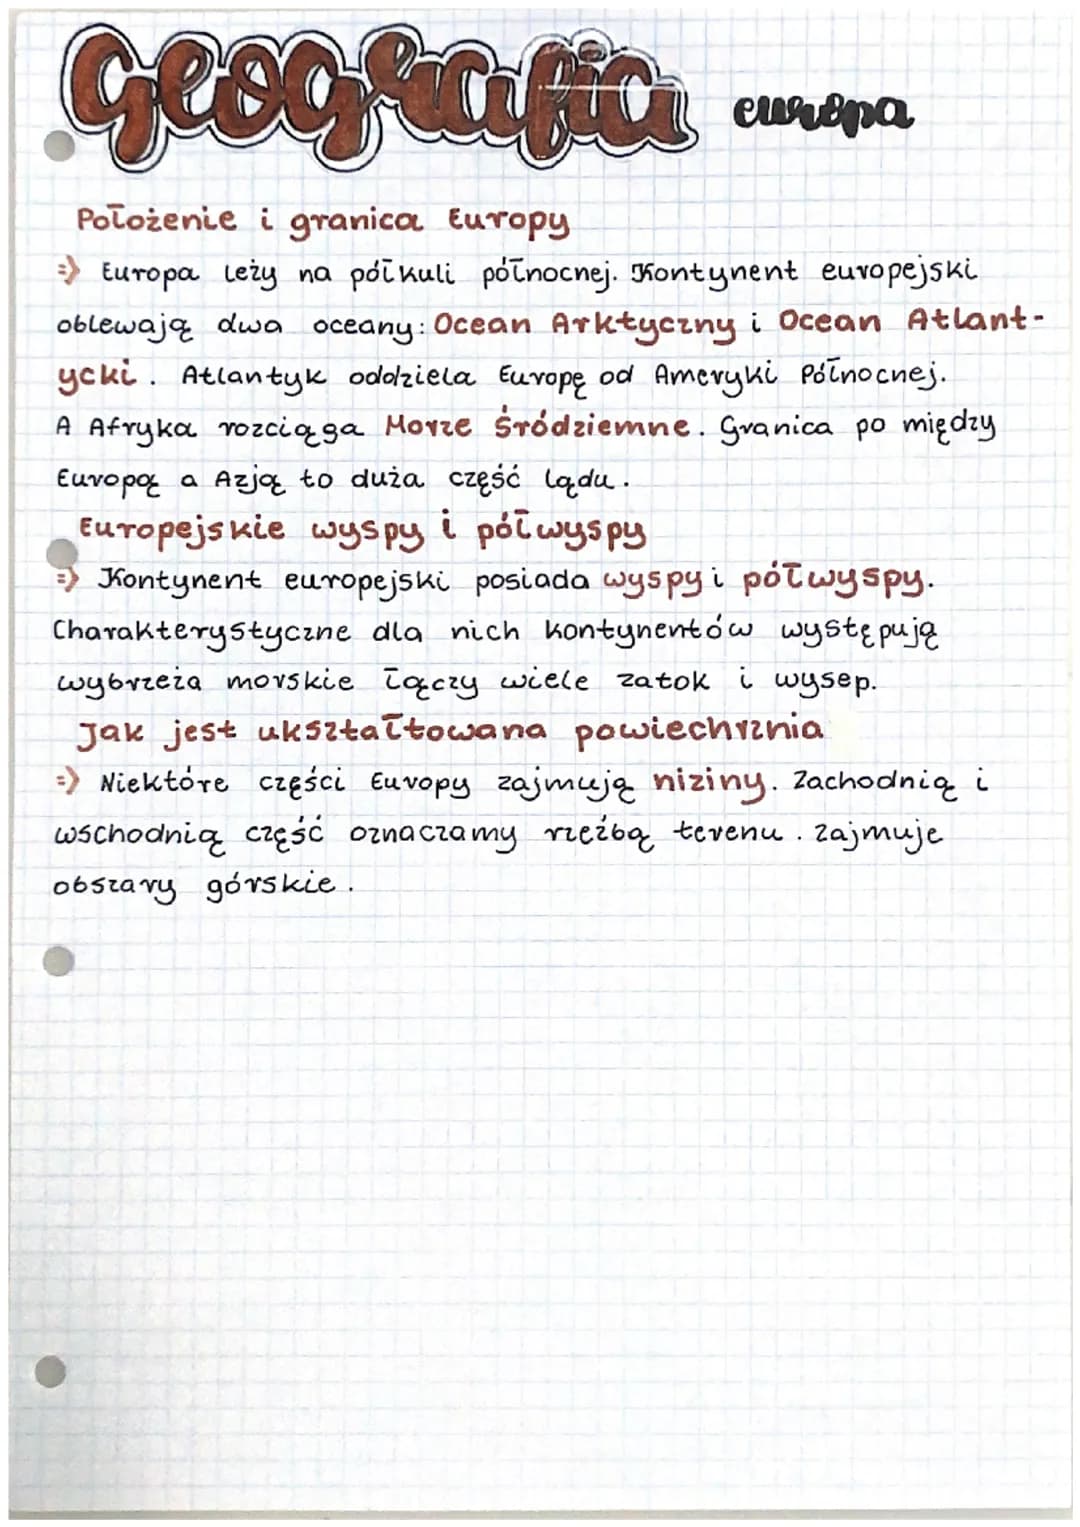 Geografia europa
Położenie i granica Europy
=) Europa leży na półkuli północnej. Kontynent europejski
oblewają dwa oceany: Ocean Arktyczny i Ocean Atlant-
ycki. Atlantyk oddziela Europę od Ameryki Północnej.
A Afryka rozciąga Morze Śródziemne. Granica po między
Europą a Azją to duża część lądu.
Europejskie wyspy i półwyspy
=) Kontynent europejski posiada wyspy i półwyspy.
Charakterystyczne dla nich kontynentów występują
wybrzeża morskie łączy wiele zatok i wysep.
Jak jest ukształtowana powiechrznia
=) Niektóre części Europy zajmują niziny. Zachodnią i
wschodnią część oznaczamy rzeźbą terenu. zajmuje
obszary górskie.